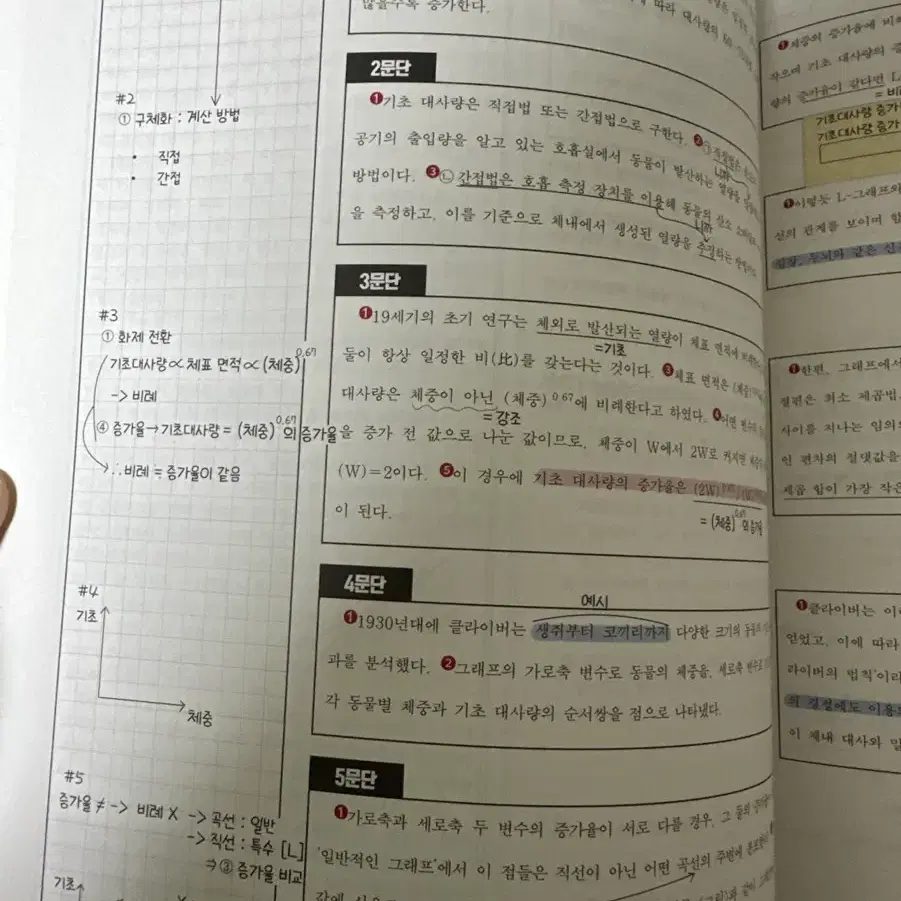 많을수록 증가한다.
#2
① 구체화 : 계산 방법
• 직접
• 간접
2문단
❶기초 대사량은 직접법 또는 간접법으로 구한다. ❷㉠
공기의 출입량을 알고 있는 호흡실에서 동물이 발산하는 열량을
방법이다. ❸㉡간접법은 호흡 측정 장치를 이용해 동물의 산소
을 측정하고, 이를 기준으로 체내에서 생성된 열량을 추정하는
#3
① 화제 전환
기초대사량∝체표 면적∝(체중)^0.67
-> 비례
④ 증가율→기초대사량 = (체중)^0.67의 증가율
∴비례 = 증가율이 같음
3문단
❶19세기의 초기 연구는 체외로 발산되는 열량이 체표 면적에
=기초
둘이 항상 일정한 비(比)를 갖는다는 것이다. ❸체표 면적은 (체중)
대사량은 체중이 아닌 (체중)^0.67에 비례한다고 하였다. ❹어떤 변수의
= 강조
을 증가 전 값으로 나눈 값이므로, 체중이 W에서 2W로 커지면
(W)=2이다. ❺이 경우에 기초 대사량의 증가율은 (2W)
= (체중)^0.67의 증가율
이 된다.
#4
기초
체중
4문단
예시
❶1930년대에 클라이버는 생쥐부터 코끼리까지 다양한 크기의 동물의
과를 분석했다. ❷그래프의 가로축 변수로 동물의 체중을, 세로축 변수로
각 동물별 체중과 기초 대사량의 순서쌍을 점으로 나타냈다.
#5
증가율 ≠ -> 비례 X -> 곡선 : 일반
-> 직선 : 특수 [L]
⇒ ③ 증가율 비교
기초
5문단
❶가로축과 세로축 두 변수의 증가율이 서로 다를 경우, 그 둘의
'일반적인 그래프'에서 이 점들은 직선이 아닌 어떤 곡선의 주변에
❶체중의 증가율에 비해
작으며 기초 대사량의
량의 증가율이 같다면 L
= 비례
기초대사량 증가
기초대사량 증가
❶이렇듯 L-그래프와
선의 관계를 보이며
심장, 두뇌와 같은 신
❶한편, 그래프에서
절편은 최소 제곱법
사이를 지나는 임의의
인 편차의 절댓값을
제곱 합이 가장 작은
❶클라이버는 이
얻었고, 이에 따라
라이버의 법칙'이라
의 결정에도 이용
이 체내 대사와 밀